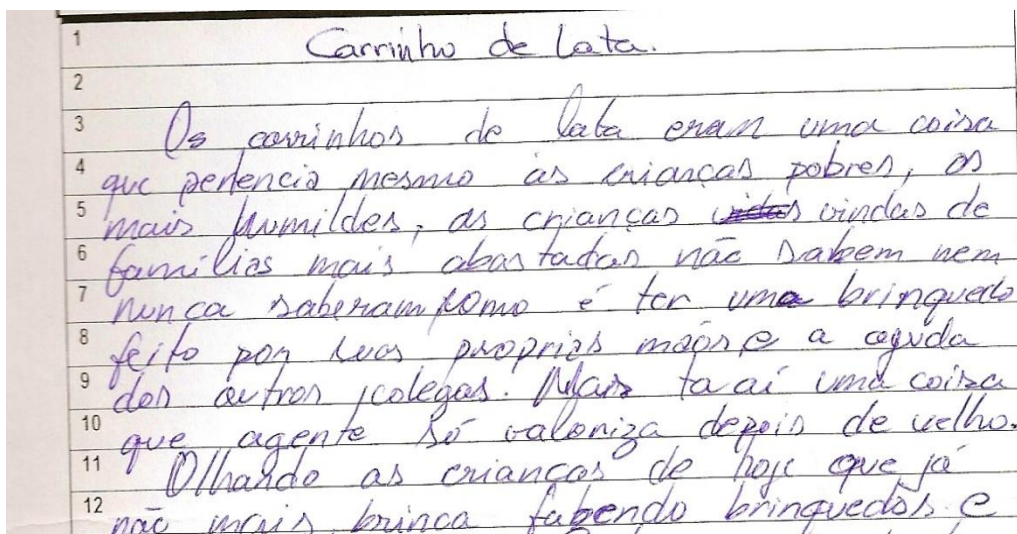 1 Carrinho de Lata.
2
3 Os carrinhos de lata eram uma coisa
4 que pertencia mesmo as crianças pobres, os
5 mais humildes, as crianças vindas de
6 familias mais abastadas não sabem nem
7 nunca saberam como é ter uma brinquedo
8 feito por suas proprias mãos e a aguda
9 dos outros colegas. Mais ta aí uma coisa
10 que agente só valoriza depois de velho.
11 Olhando as crianças de hoje que já
12 não mais brinca fabendo brinquedos e